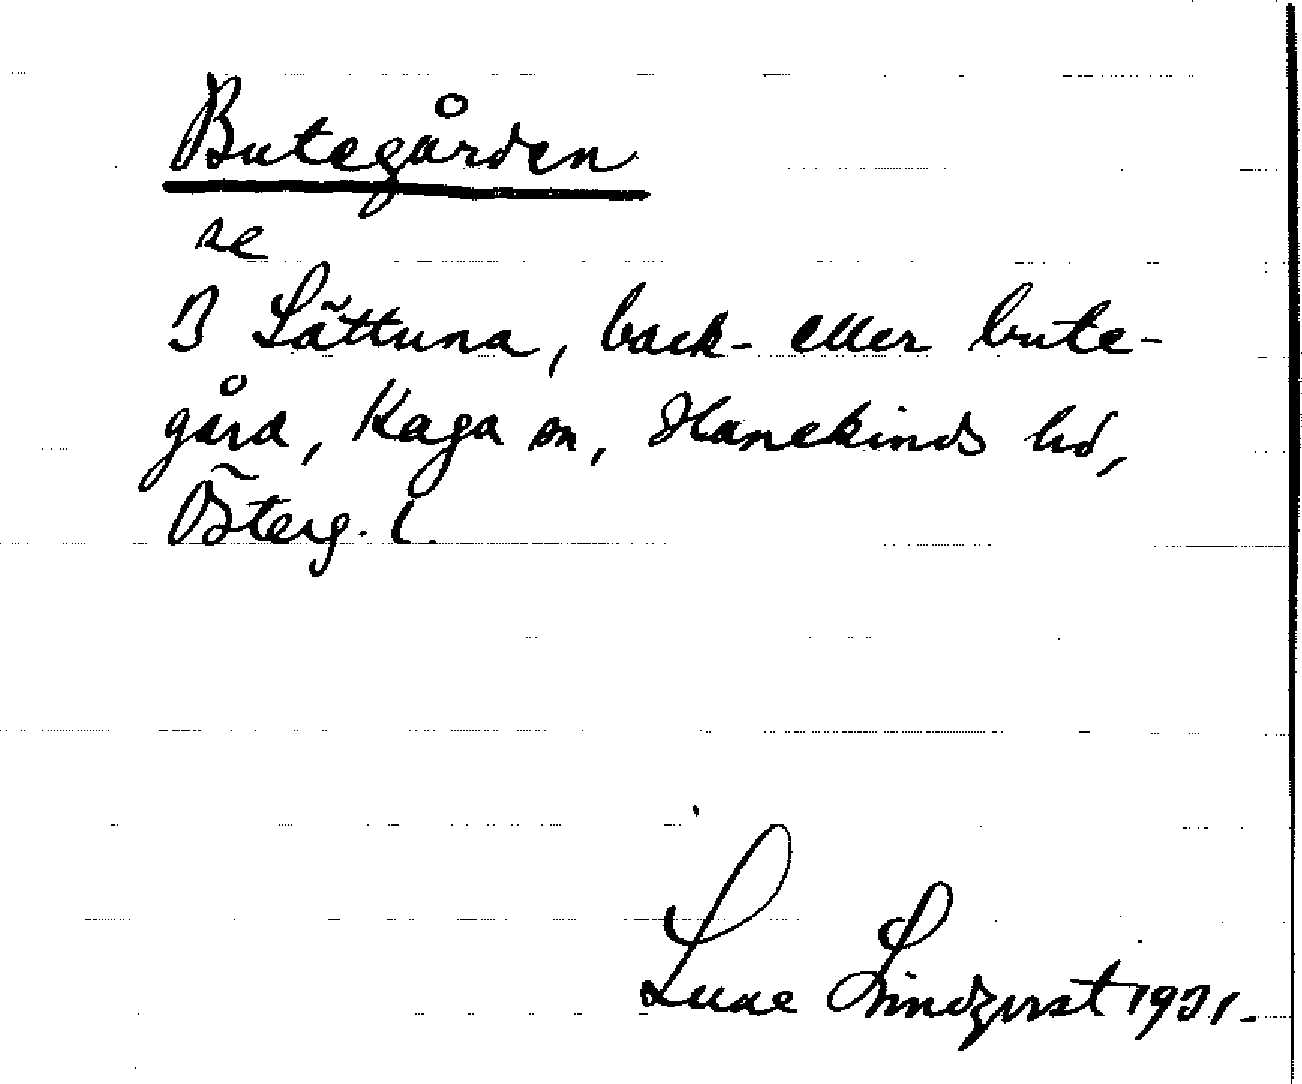 Butegården
se
3 Lättuna, back- eller bute-
gård, Kaga sn, Hanekinds hd,
Österg. l.
Sune Lindqvist 1931.